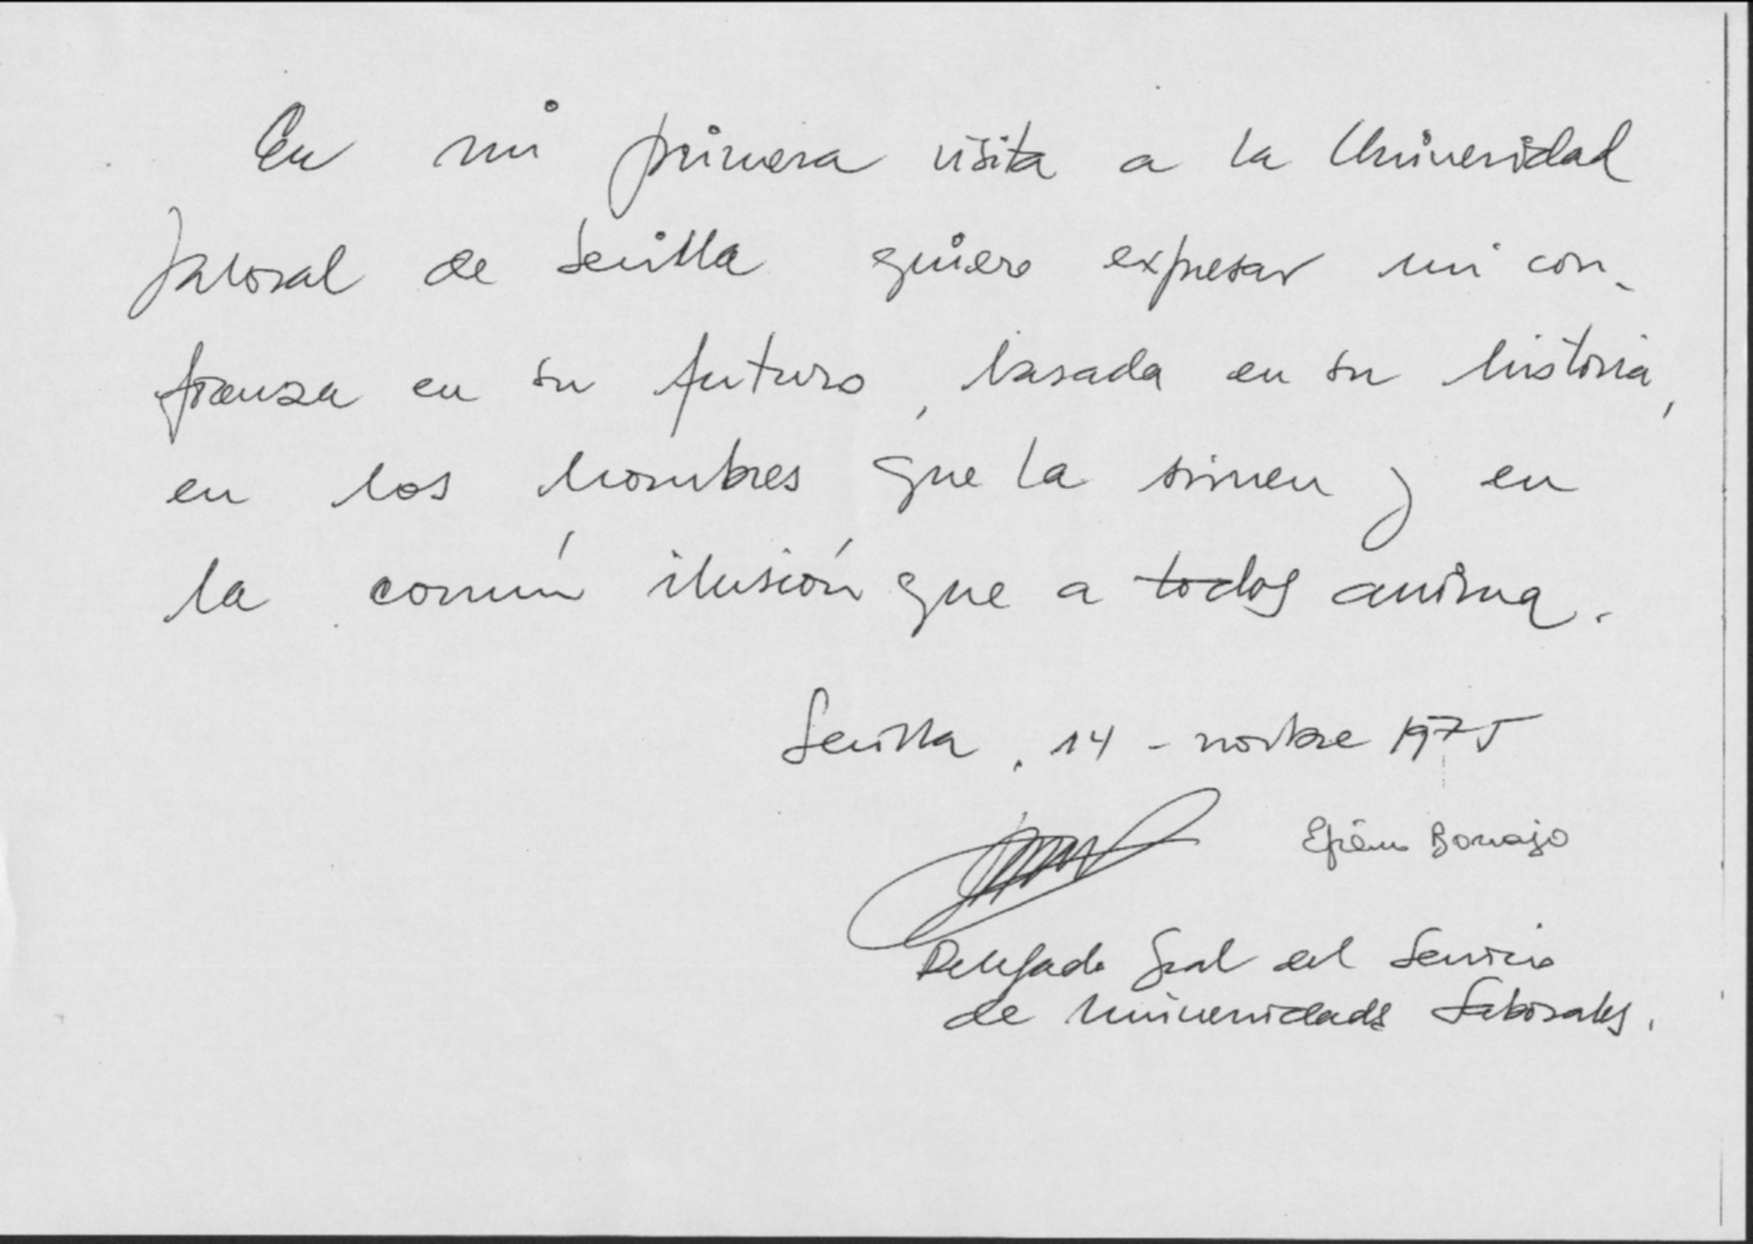 En mi primera visita a la Universidad
Laboral de Sevilla quiero expresar mi con-
fianza en su futuro, basada en su historia,
en los hombres que la sirven y en
la común ilusión que a todos anima.
Sevilla, 14 - novbre 1975
Efrén Borrajo
Delegado Gral del Servicio
de Universidades Laborales.